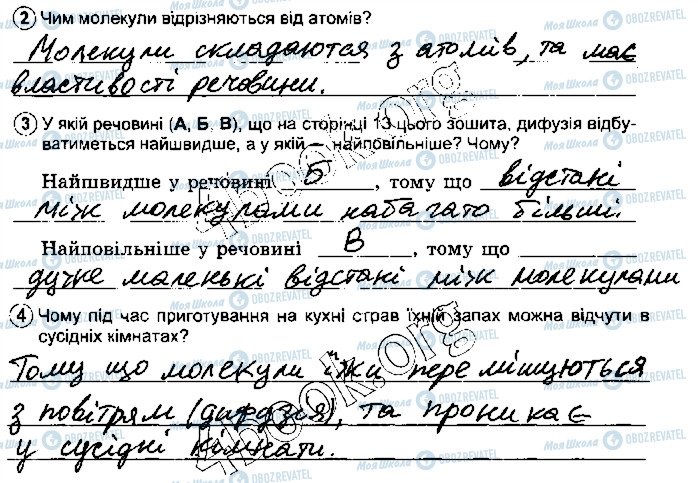 2 Чим молекули відрізняються від атомів?
Молекули складаються з атомів, та має
властивості речовини.
3 У якій речовині (А, Б, В), що на сторінці 13 цього зошита, дифузія відбу-
ватиметься найшвидше, а у якій — найповільніше? Чому?
Найшвидше у речовині Б, тому що відстані
між молекулами набагато більші.
Найповільніше у речовині В, тому що
дуже маленькі відстані між молекулами
4 Чому під час приготування на кухні страв їхній запах можна відчути в
сусідніх кімнатах?
Тому що молекули їжи перемішуються
з повітрям (дифузія), та проникає
у сусідні кімнати.
4book.org
4book.org
Моя Школа OBOZREVATEL